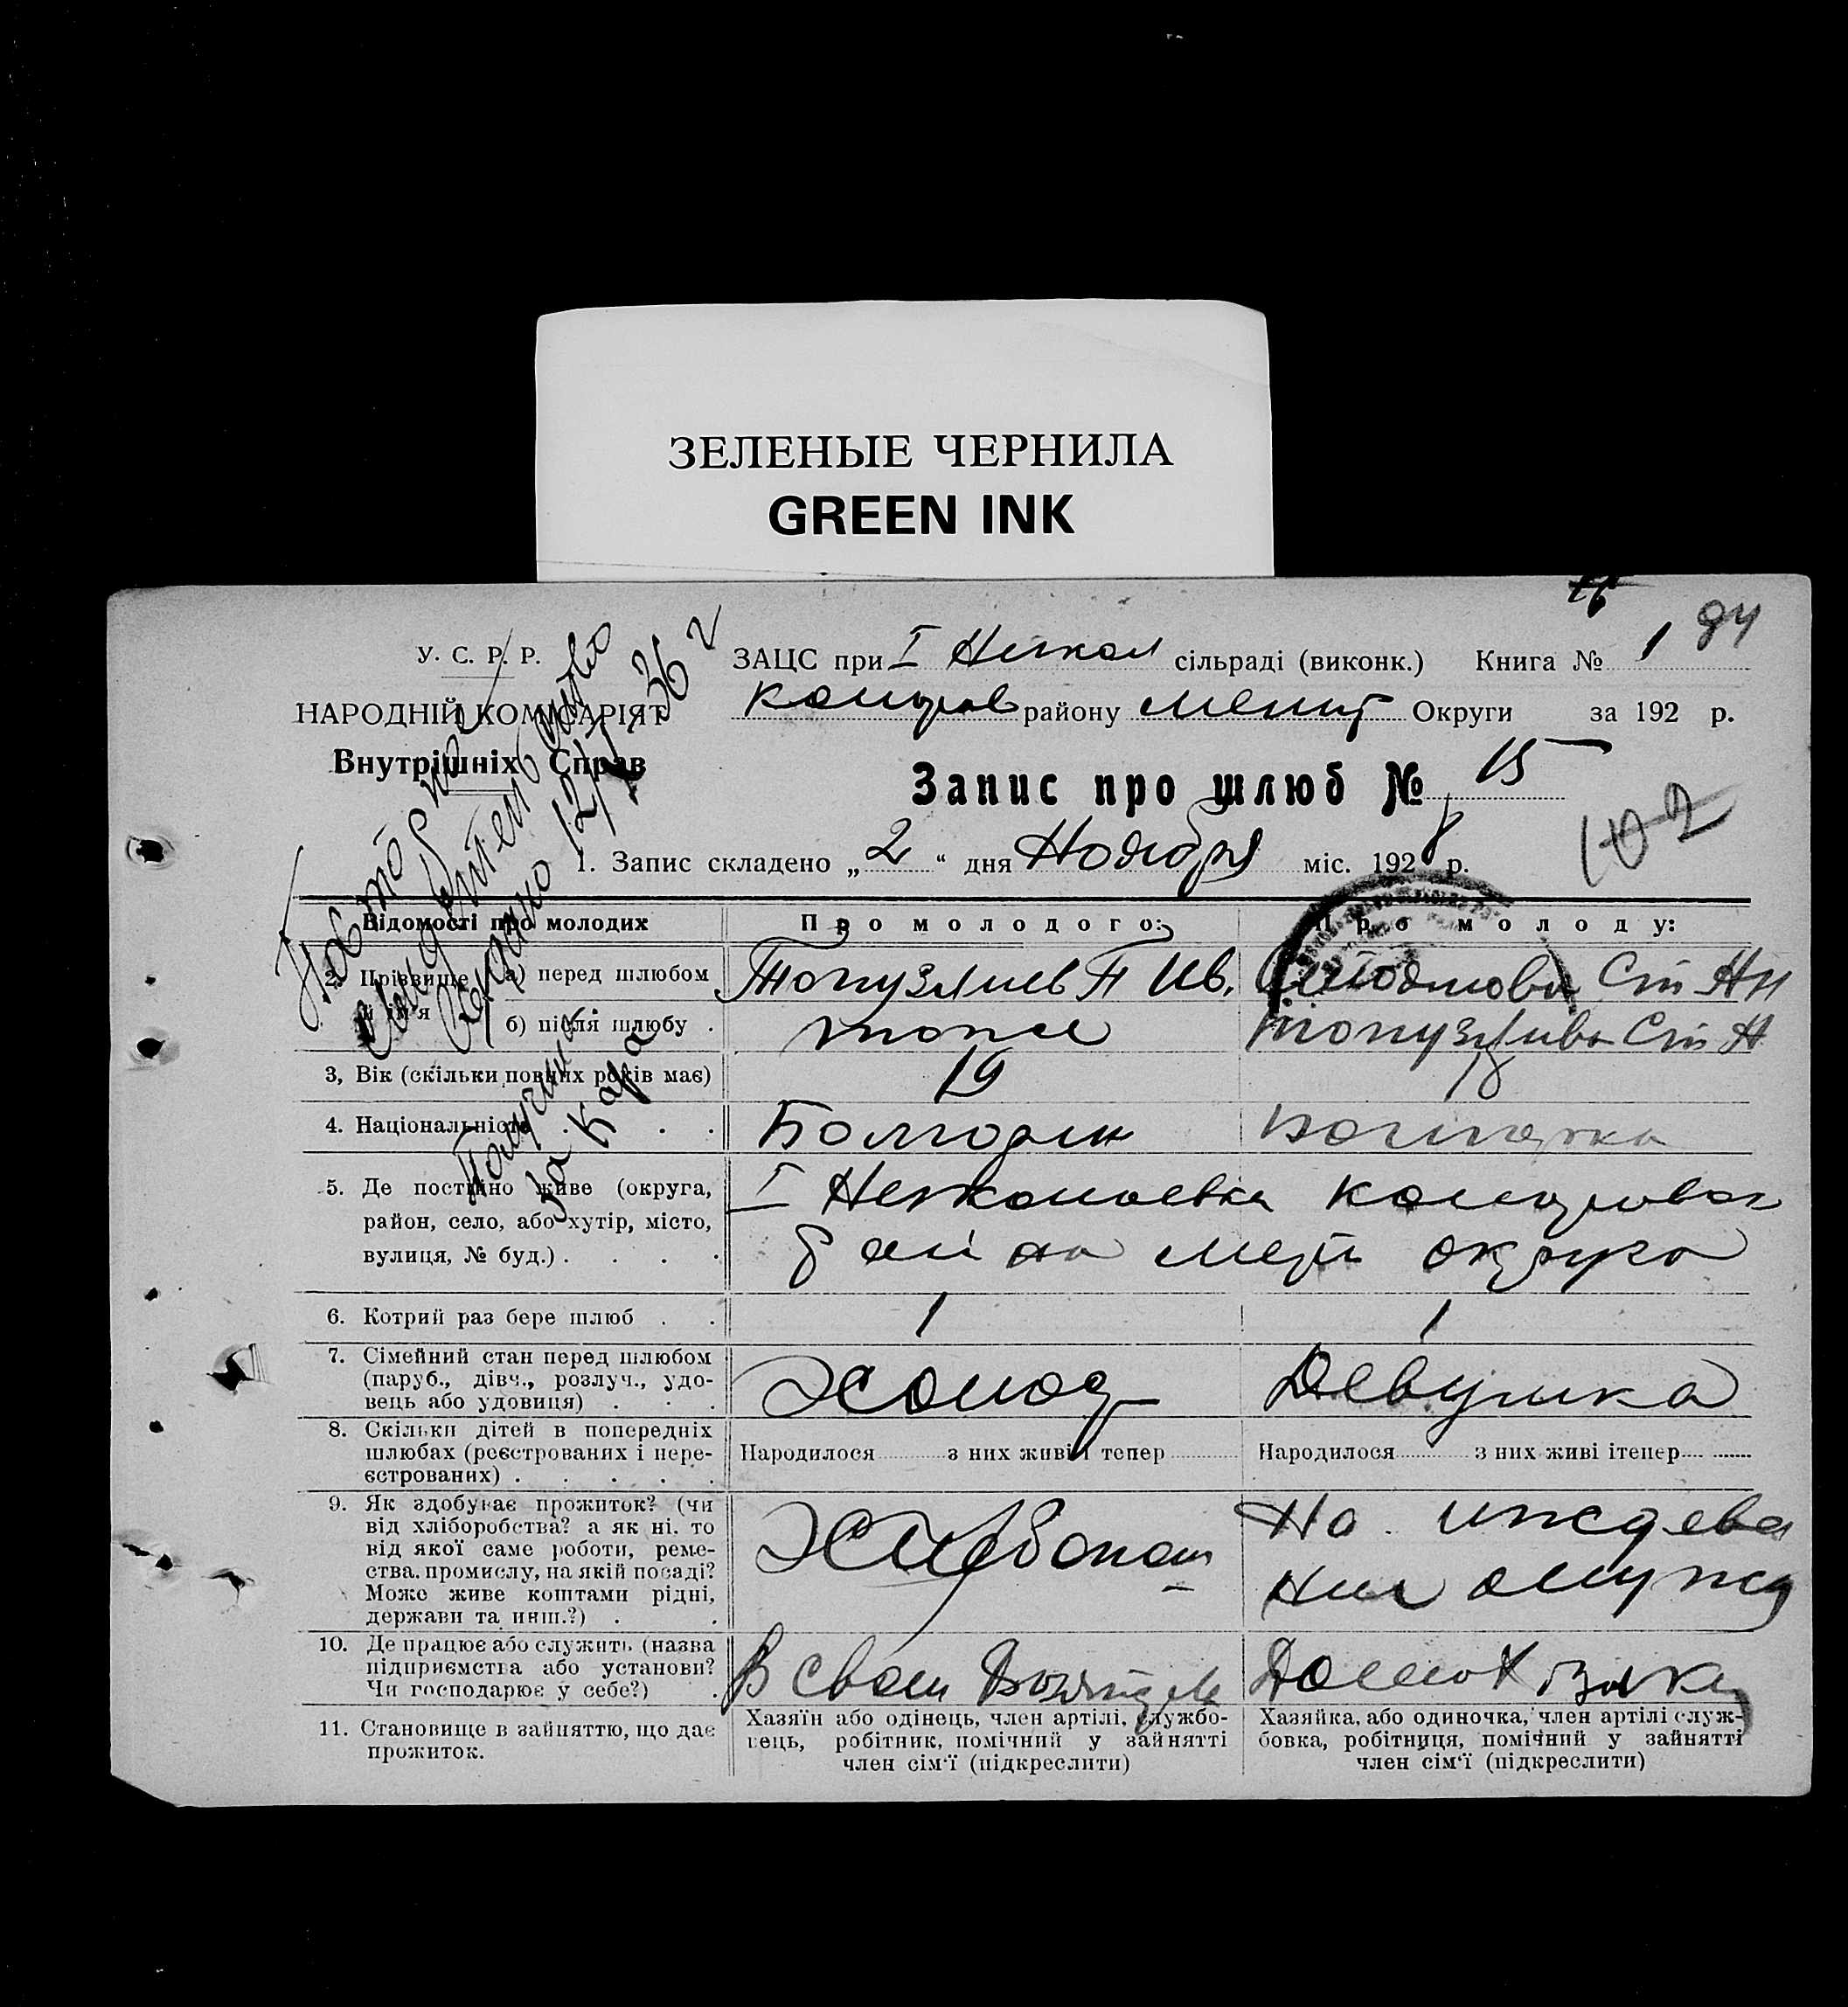 ЗЕЛЕНЫЕ ЧЕРНИЛА
GREEN INK
84
У. С. Р. Р.
НАРОДНІЙ КОМІСАРІЯТ
Внутрішніх Справ
ЗАЦС при I сільраді (виконк.) Книга № 1
району Округи за 192 р.
Запис про шлюб № 15
102
1. Запис складено „2“ дня Ноября міс. 1928 р.
Повторное
свидетельство
12/I 36 г
Відомості про молодих
Про молодого:
Про молоду:
2. Прізвище й ім'я
а) перед шлюбом
Топузлиев П Ив.
Ст Ни
б) після шлюбу .
Топузлиева Ст Н
3, Вік (скільки повних років має)
19
18
4. Національність . . . .
Болгорин
Болгарка
5. Де постійно живе (округа,
район, село, або хутір, місто,
вулиця, № буд.) . . . .
I
округа
6. Котрий раз бере шлюб . .
1
1
7. Сімейний стан перед шлюбом
(паруб., дівч., розлуч., удо-
вець або удовиця) . . .
Холод
Девушка
8. Скільки дітей в попередніх
шлюбах (реєстрованих і нере-
єстрованих) . . . . .
Народилося з них живі і тепер
Народилося з них живі ітепер
9. Як здобуває прожиток? (чи
від хліборобства? а як ні. то
від якої саме роботи, реме-
ства. промислу, на якій посаді?
Може живе коштами рідні,
держави та инш.?) . .
На иждеве
нии
10. Де працює або служить (назва
підприємства або установи?
Чи господарює у себе?) .
В своем
11. Становище в зайняттю, що дає
прожиток.
Хазяїн або одінець, член артілі, службо-
вець, робітник, помічний у зайнятті
член сім'ї (підкреслити)
Хазяйка, або одиночка, член артілі служ-
бовка, робітниця, помічний у зайнятті
член сім'ї (підкреслити)